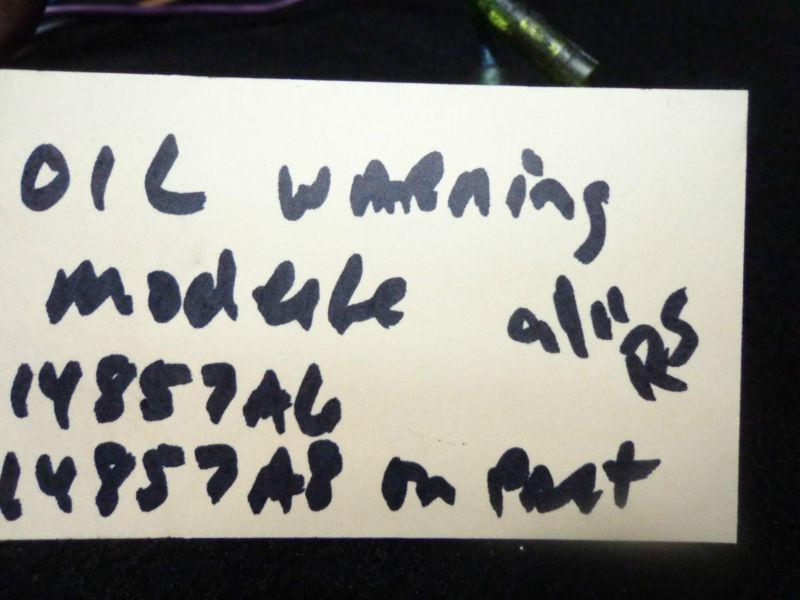 OIL WARNING
module
a/11 RS
14857A6
14857A8 on Part